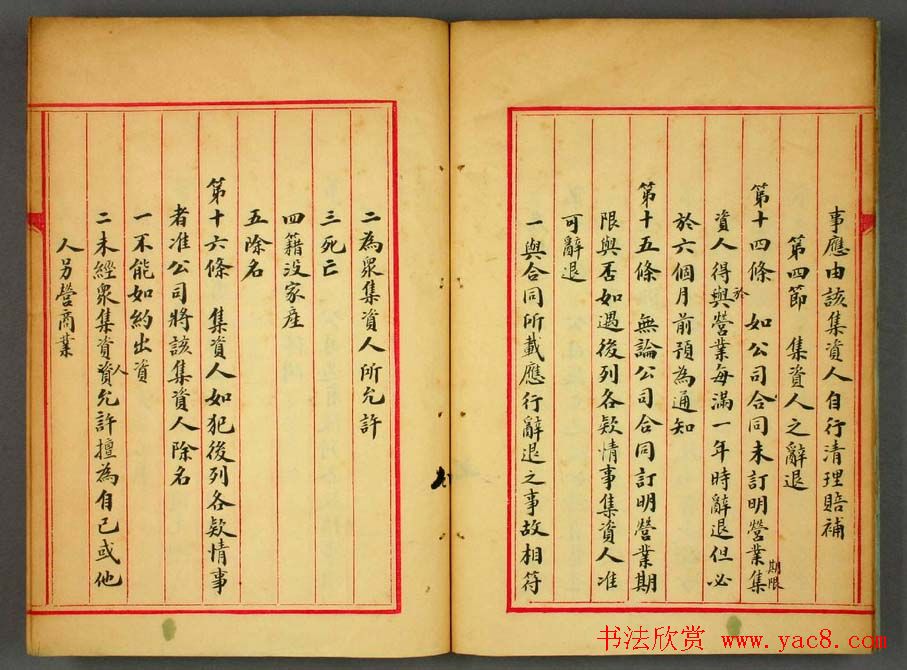 事應由該集資人自行清理賠補
第四節 集資人之辭退
第十四條 如公司合同未訂明營業期限集
資人得於與營業每滿一年時辭退但必
於六個月前預為通知
第十五條 無論公司合同訂明營業期
限與否如遇後列各欵情事集資人准
可辭退
一與合同所載應行辭退之事故相符
二為眾集資人所允許
三死亡
四籍沒家產
五除名
第十六條 集資人如犯後列各欵情事
者准公司將該集資人除名
一不能如約出資
二未經眾集資資人允許擅為自己或他
人另營商業
书法欣赏 www.yac8.com